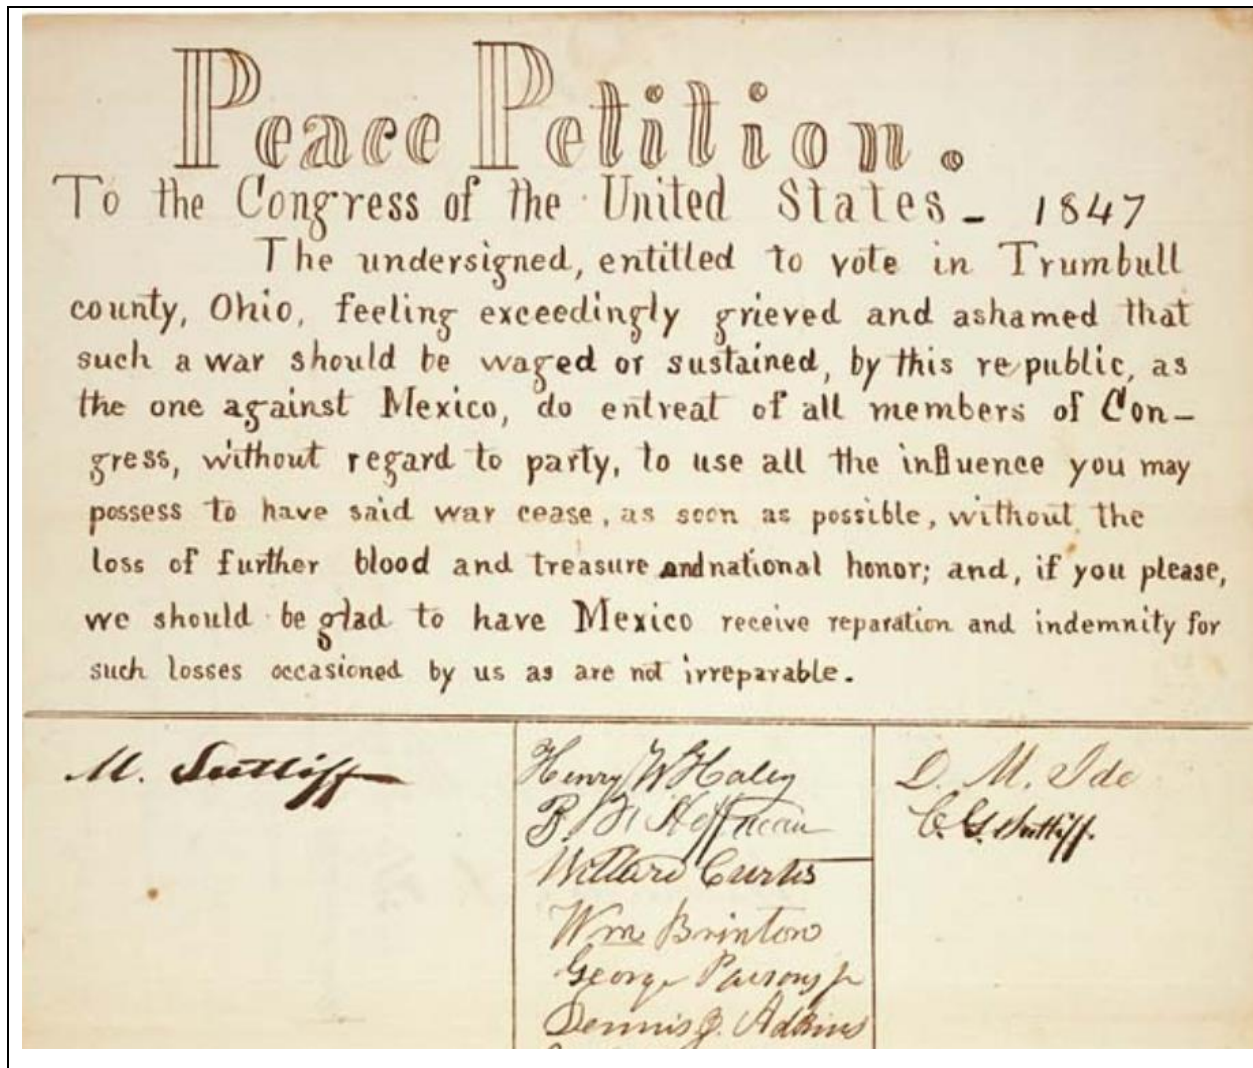 Peace Petition.
To the Congress of the United States - 1847
The undersigned, entitled to vote in Trumbull
county, Ohio, feeling exceedingly grieved and ashamed that
such a war should be waged or sustained, by this republic, as
the one against Mexico, do entreat of all members of Con-
gress, without regard to party, to use all the influence you may
possess to have said war cease, as soon as possible, without the
loss of further blood and treasure and national honor; and, if you please,
we should be glad to have Mexico receive reparation and indemnity for
such losses occasioned by us as are not irreparable.
M. Sutliff
Henry W Haley
B. Hoffman
Willard Curtis
Wm Brinton
George Parsons jr
Dennis J. Adkins
D. M. Ide
C. G. Sutliff.